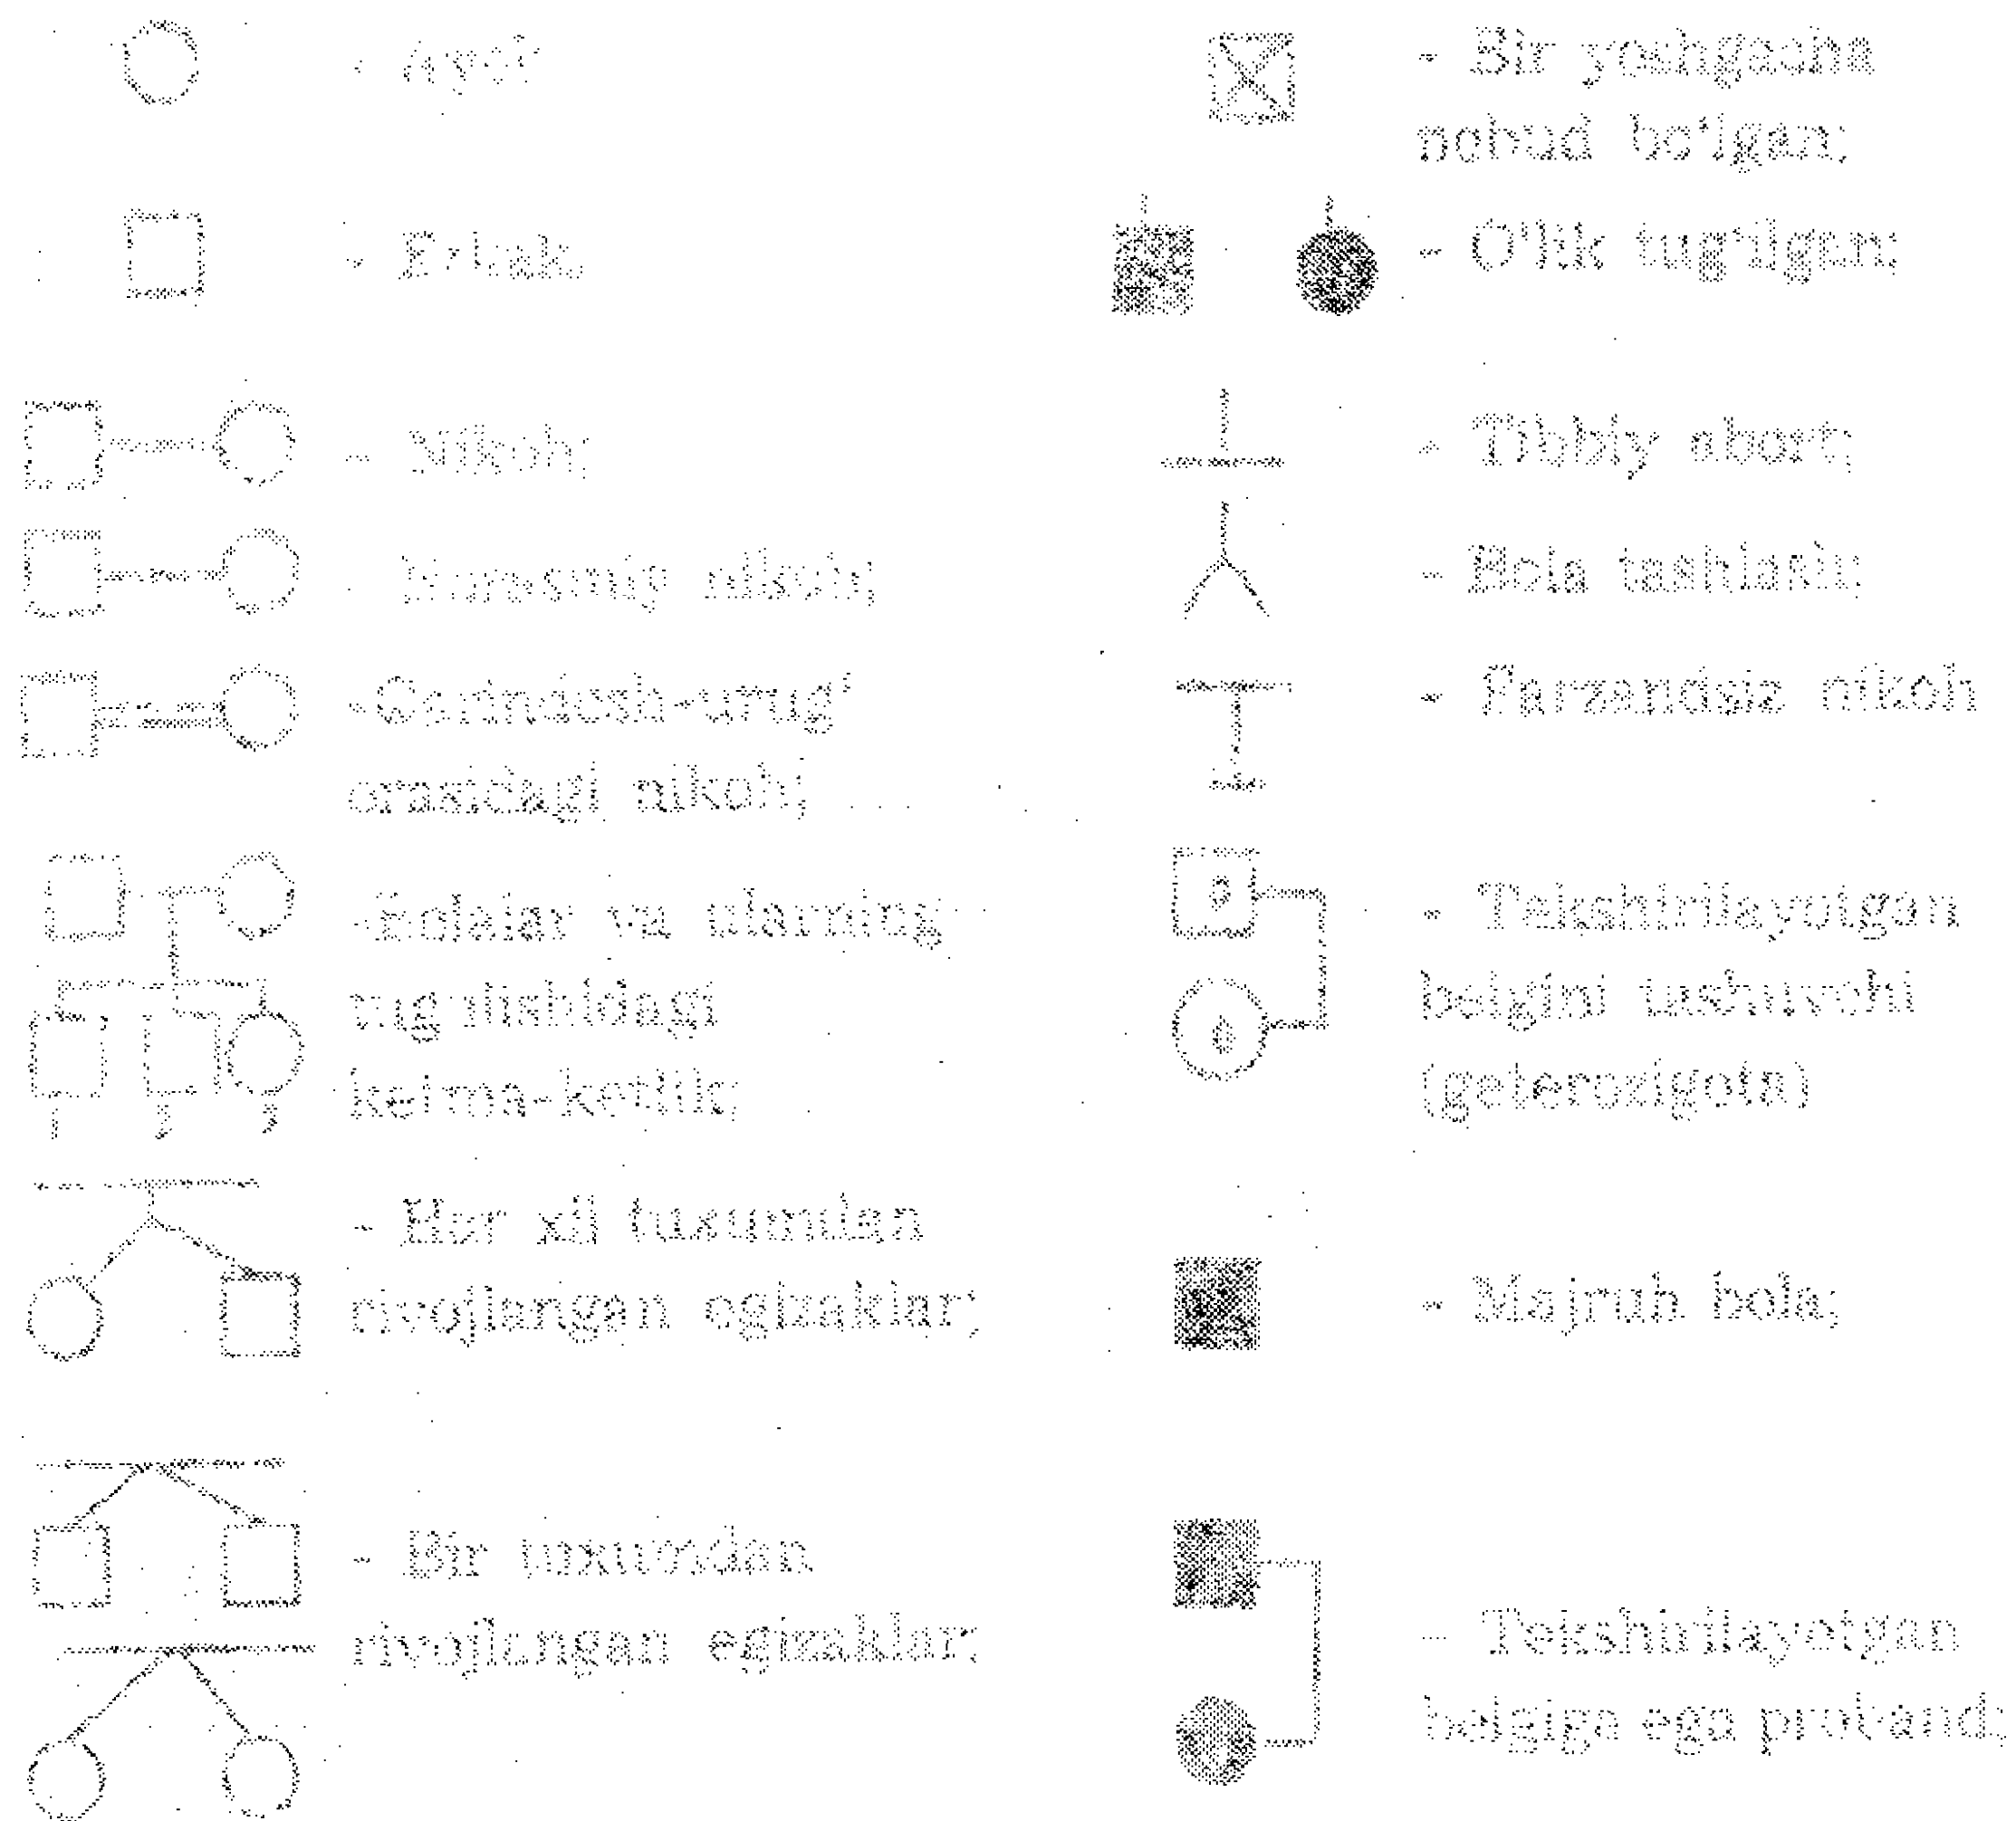 - Ayol
- Erkak,
- Nikoh;
- Norasmiy nikoh;
-Qarindosh-urug'
orasidagi nikoh;
-Bolalar va ularning
tug'ilishidagi
ketma-ketlik;
- Har xil tuxumdan
rivojlangan egizaklar;
- Bir tuxumdan
rivojlangan egizaklar;
- Bir yoshgacha
nobud bo'lgan;
- O'lik tug'ilgan;
- Tibbiy abort;
- Bola tashlash;
- Farzandsiz nikoh
- Tekshirilayotgan
belgini tashuvchi
(geterozigota)
- Majruh bola;
- Tekshirilayotgan
belgiga ega proband;